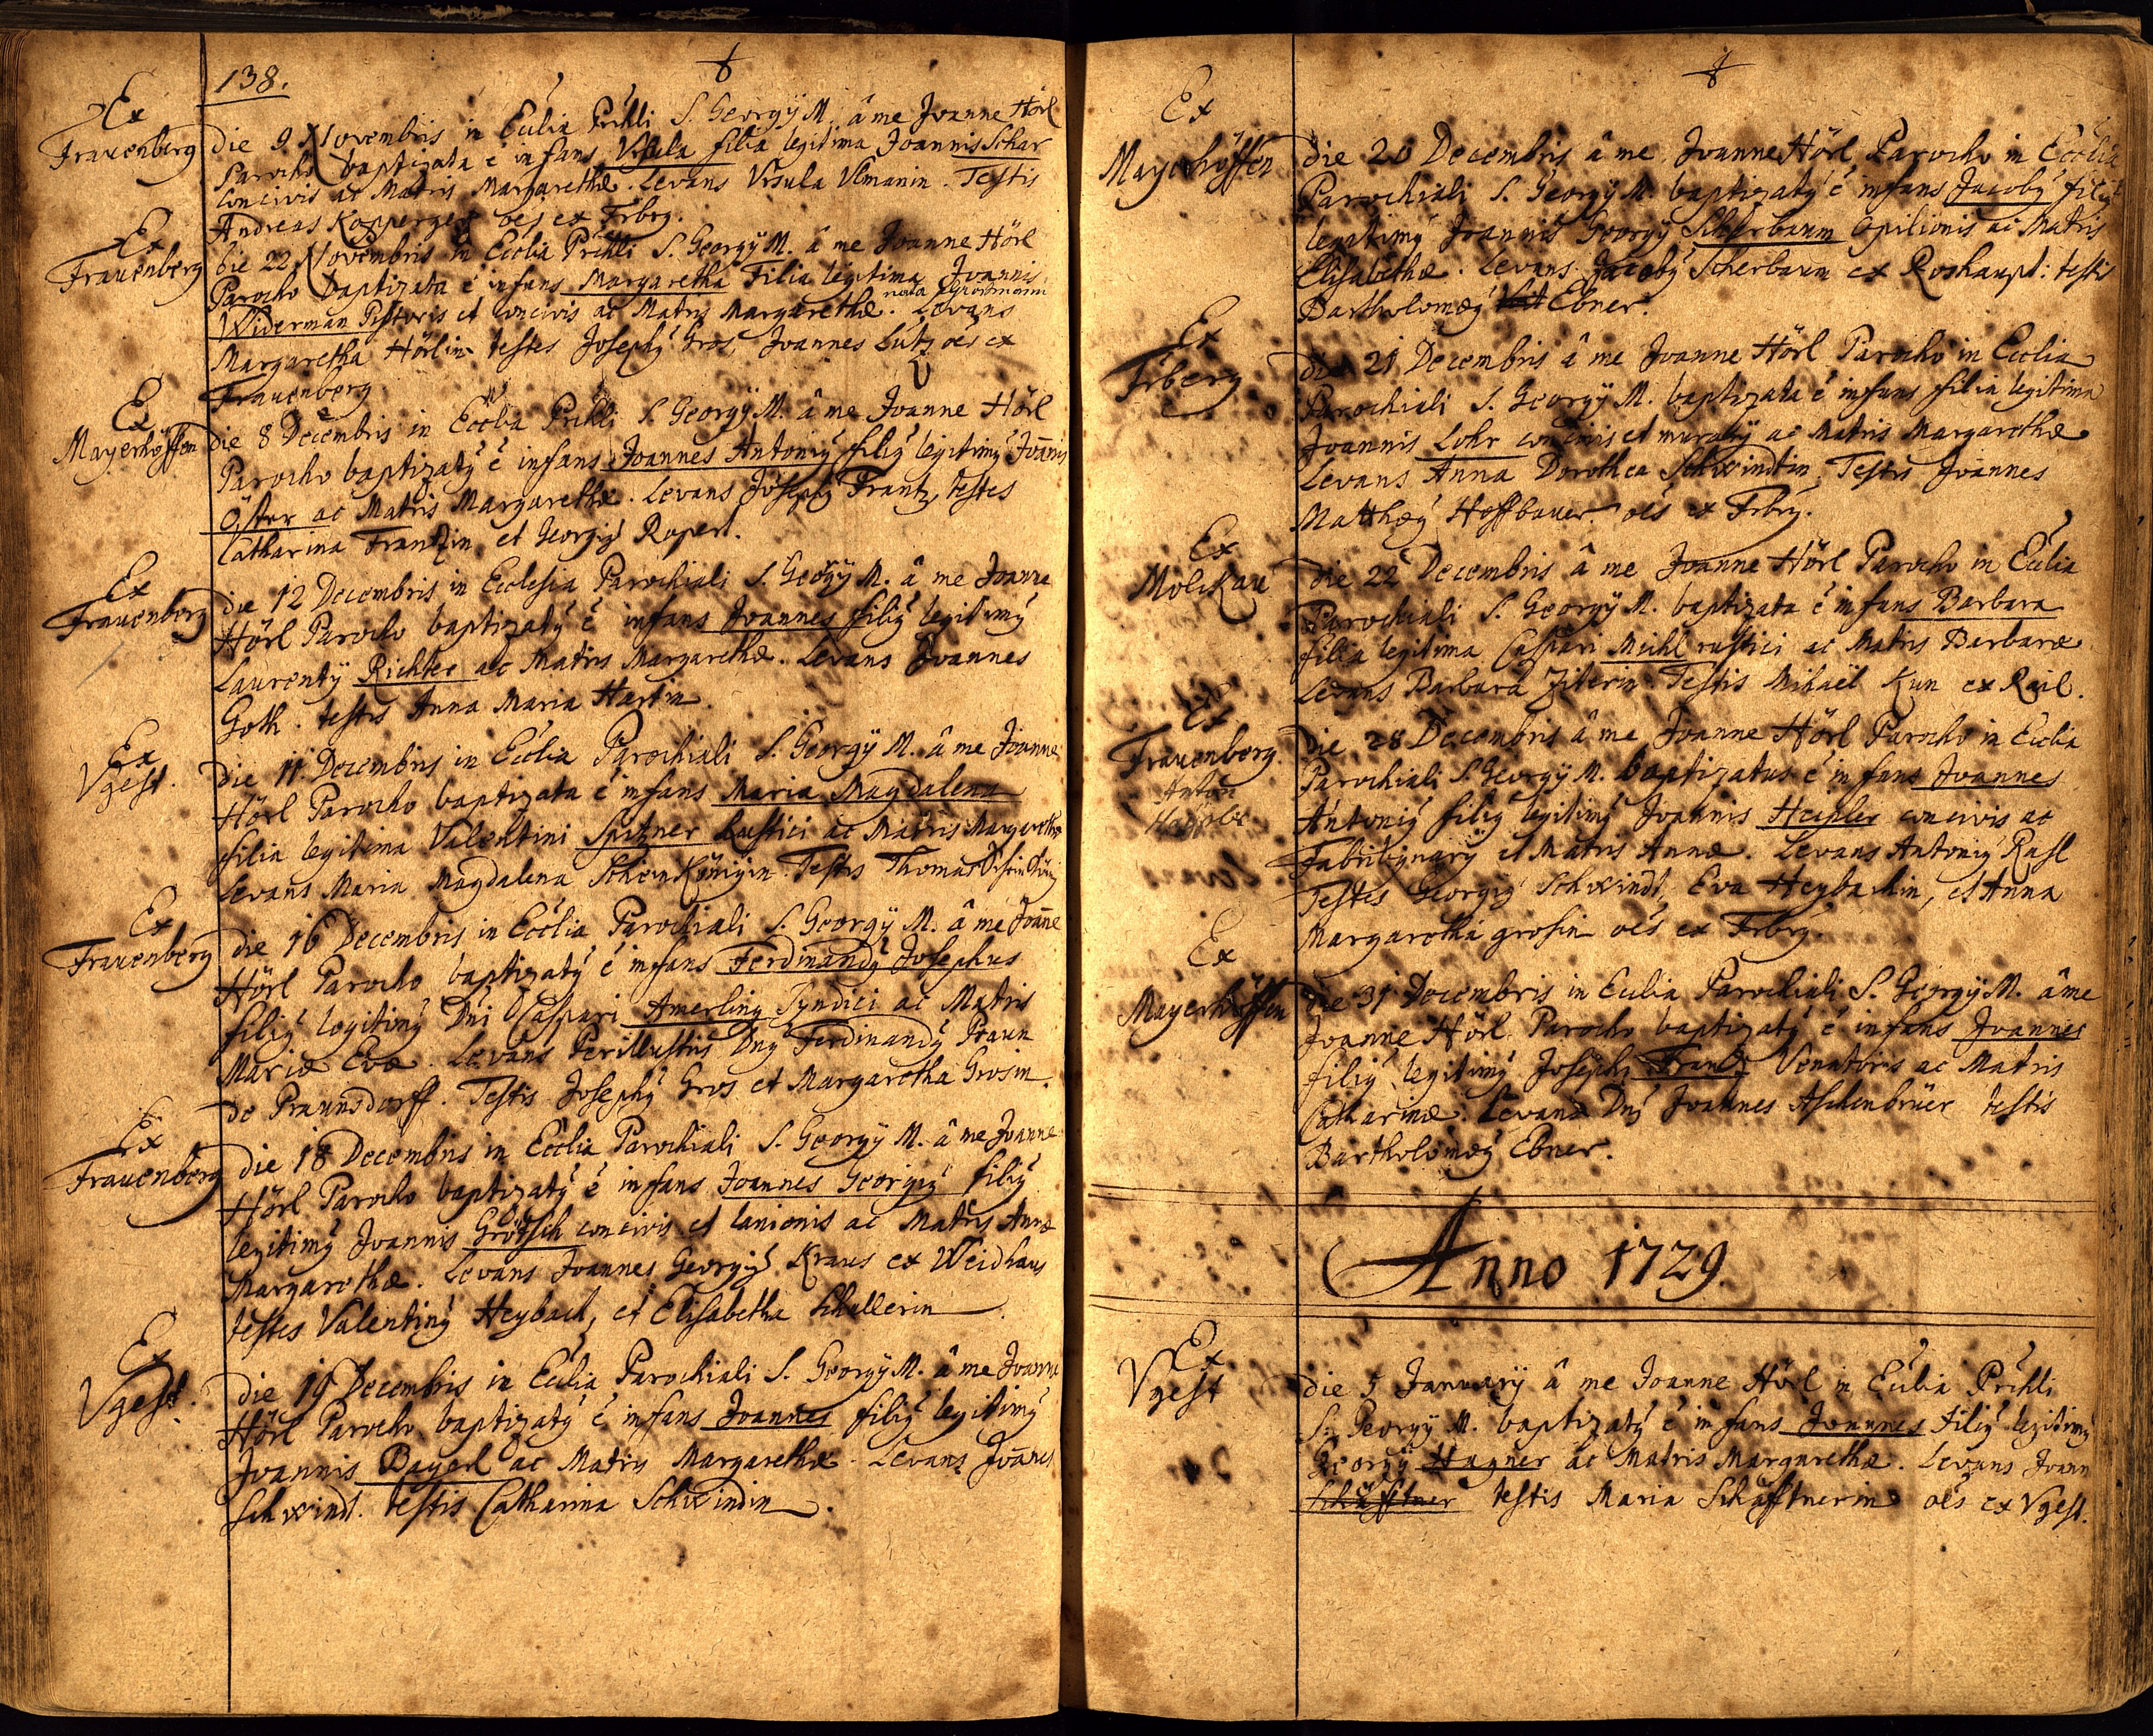 138.
Ex
Frauenberg
die 9 Novembris in Ecclia Prchli S. Georgÿ M. â me Joanne Hörl
Parocho baptizata ē infans Vrsula filia legitima Joannis Schar
concivis ac Matris Margarethæ. Levans Vrsula Vlmanin. Testis
Andreas Kopperger oes ex Frbrg.
Ex
Frauenberg
Die 22 Novembris in Ecclia Prchli S. Georgÿ M. â me Joanne Hörl
Parocho baptizata ē infans Margaretha Filia legitima Joannis
Widerman Pistoris et concivis ac Matris Margarethæ. nata Levans
Margaretha Hörlin testes Josephȳ Gros, Joannes Lutz oēs ex
Frauenberg
Ex
Mayerhöffen
die 8 Decembris in Ecclia Prchli S. Georgÿ M. â me Joanne Hörl
Parocho baptizatȳ ē infans Joannes Antoniȳ filiȳ legitimȳ Joānis
Öster ac Matris Margarethæ. Levans Josephȳ Frantz, testes
Catharina Frantzin et Georgiȳ Rupert.
Ex
Frauenberg
die 12 Decembris in Ecclesia Parochiali S. Georgÿ M. â me Joanne
Hörl Parocho baptizatȳ ē infans Joannes filiȳ legitimȳ
Laurentÿ Richter ac Matris Margarethæ. Levans Joannes
Goth. testis Anna Maria Hartin.
Ex
Vgest.
die 11 Decembris in Ecclia Parochiali S. Georgÿ M. â me Joanne
Hörl Parocho baptizata ē infans Maria Magdalena
filia legitima Valentini Spitzner Rustici ac Matris Margarethæ
Levans Maria Magdalena ScheinKönigin. Testis Thomas
Ex
Frauenberg
die 16 Decembris in Ecclia Parochiali S. Georgÿ M. â me Joāne
Hörl Parocho baptizatȳ ē infans Ferdinandȳ Josephus
filiȳ legitimȳ Dni Caspari Amerling Syndici ac Matris
Mariæ Evæ. Levans Perillustris Dnȳ Ferdinandȳ Braun
de Praunsdorff. Testis Josephȳ Gros et Margaretha Grosin.
Ex
Frauenberg
die 18 Decembris in Ecclia Parochiali S. Georgÿ M. â me Joanne
Hörl Parocho baptizatȳ ē infans Joannes Georgiȳ filiȳ
legitimȳ Joannis Grötsch concivis et lanionis ac Matris Annæ
Margarethæ. Levans Joannes Georgiȳ Kraus ex Weidhaus
testes Valentinȳ Heybach, et Elisabetha Schullerin
Ex
Vgest.
die 19 Decembris in Ecclia Parochiali S. Georgÿ M. â me Joanne
Hörl Parocho baptizatȳ ē infans Joannes filiȳ legitimȳ
Joannis Bayerl ac Matris Margarethæ. Levans Joānes
Schwindt. testis Catharina Schwindin.
Ex
Mayerhöffen
die 20 Decembris â me Joanne Hörl Parocho in Ecclia
Parochiali S. Georgÿ M. baptizatȳ ē infans Jacobȳ filiȳ
legitimȳ Joannis Georgÿ Scherbaum opilionis ac Matris
Elisabethæ. Levans Jacobȳ Scherbaum ex Roshaupt: testis
Bartholomæȳ Ebner.
Ex
Frberg
die 21 Decembris â me Joanne Hörl Parocho in Ecclia
Parochiali S. Georgÿ M. baptizata ē infans filia legitima
Joannis Lohr concivis et murarÿ ac Matris Margarethæ
Levans Anna Dorothea Schwindtin, Testis Joannes
Matthæȳ Hoffbauer. oēs ex Frbrg.
Ex
Molckau
die 22 Decembris â me Joanne Hörl Parocho in Ecclia
Parochiali S. Georgÿ M. baptizata ē infans Barbara
filia legitima Caspari Michl rustici ac Matris Barbaræ
Levans Barbara Ziterin Testis Mihaël Kun ex Reil.
Ex
Frauenberg.
Anton
die 28 Decembris â me Joanne Hörl Parocho in Ecclia
Parochiali S. Georgÿ M. baptizatus ē infans Joannes
Antoniȳ filiȳ legitimȳ Joannis Heipler concivis ac
Fabrilignarÿ et Matris Annæ. Levans Antoniȳ Rasl
Testes Georgiȳ Schwindt, Eva Heybachin, et Anna
Margaretha grosin oēs ex Frbrg.
Ex
Mayerhöffen
die 31 Decembris in Ecclia Parochiali S. Georgÿ M. â me
Joanne Hörl Parocho baptizatȳ ē infans Joannes
filiȳ legitimȳ Josephi Frantz Venatoris ac Matris
Catharinæ. Levans Dnȳ Joannes Aschenbrüer testis
Bartholomæȳ Ebner.
Anno 1729.
Ex
Vgest
die 5 Januarÿ â me Joanne Hörl in Ecclia Prchli
S. Georgÿ M. baptizatȳ ē infans Joannes filiȳ legitimȳ
Georgÿ Hagner ac Matris Margarethæ. Levans Joann
Schäfftner testis Maria Schäfftnerin oēs ex Vgest.